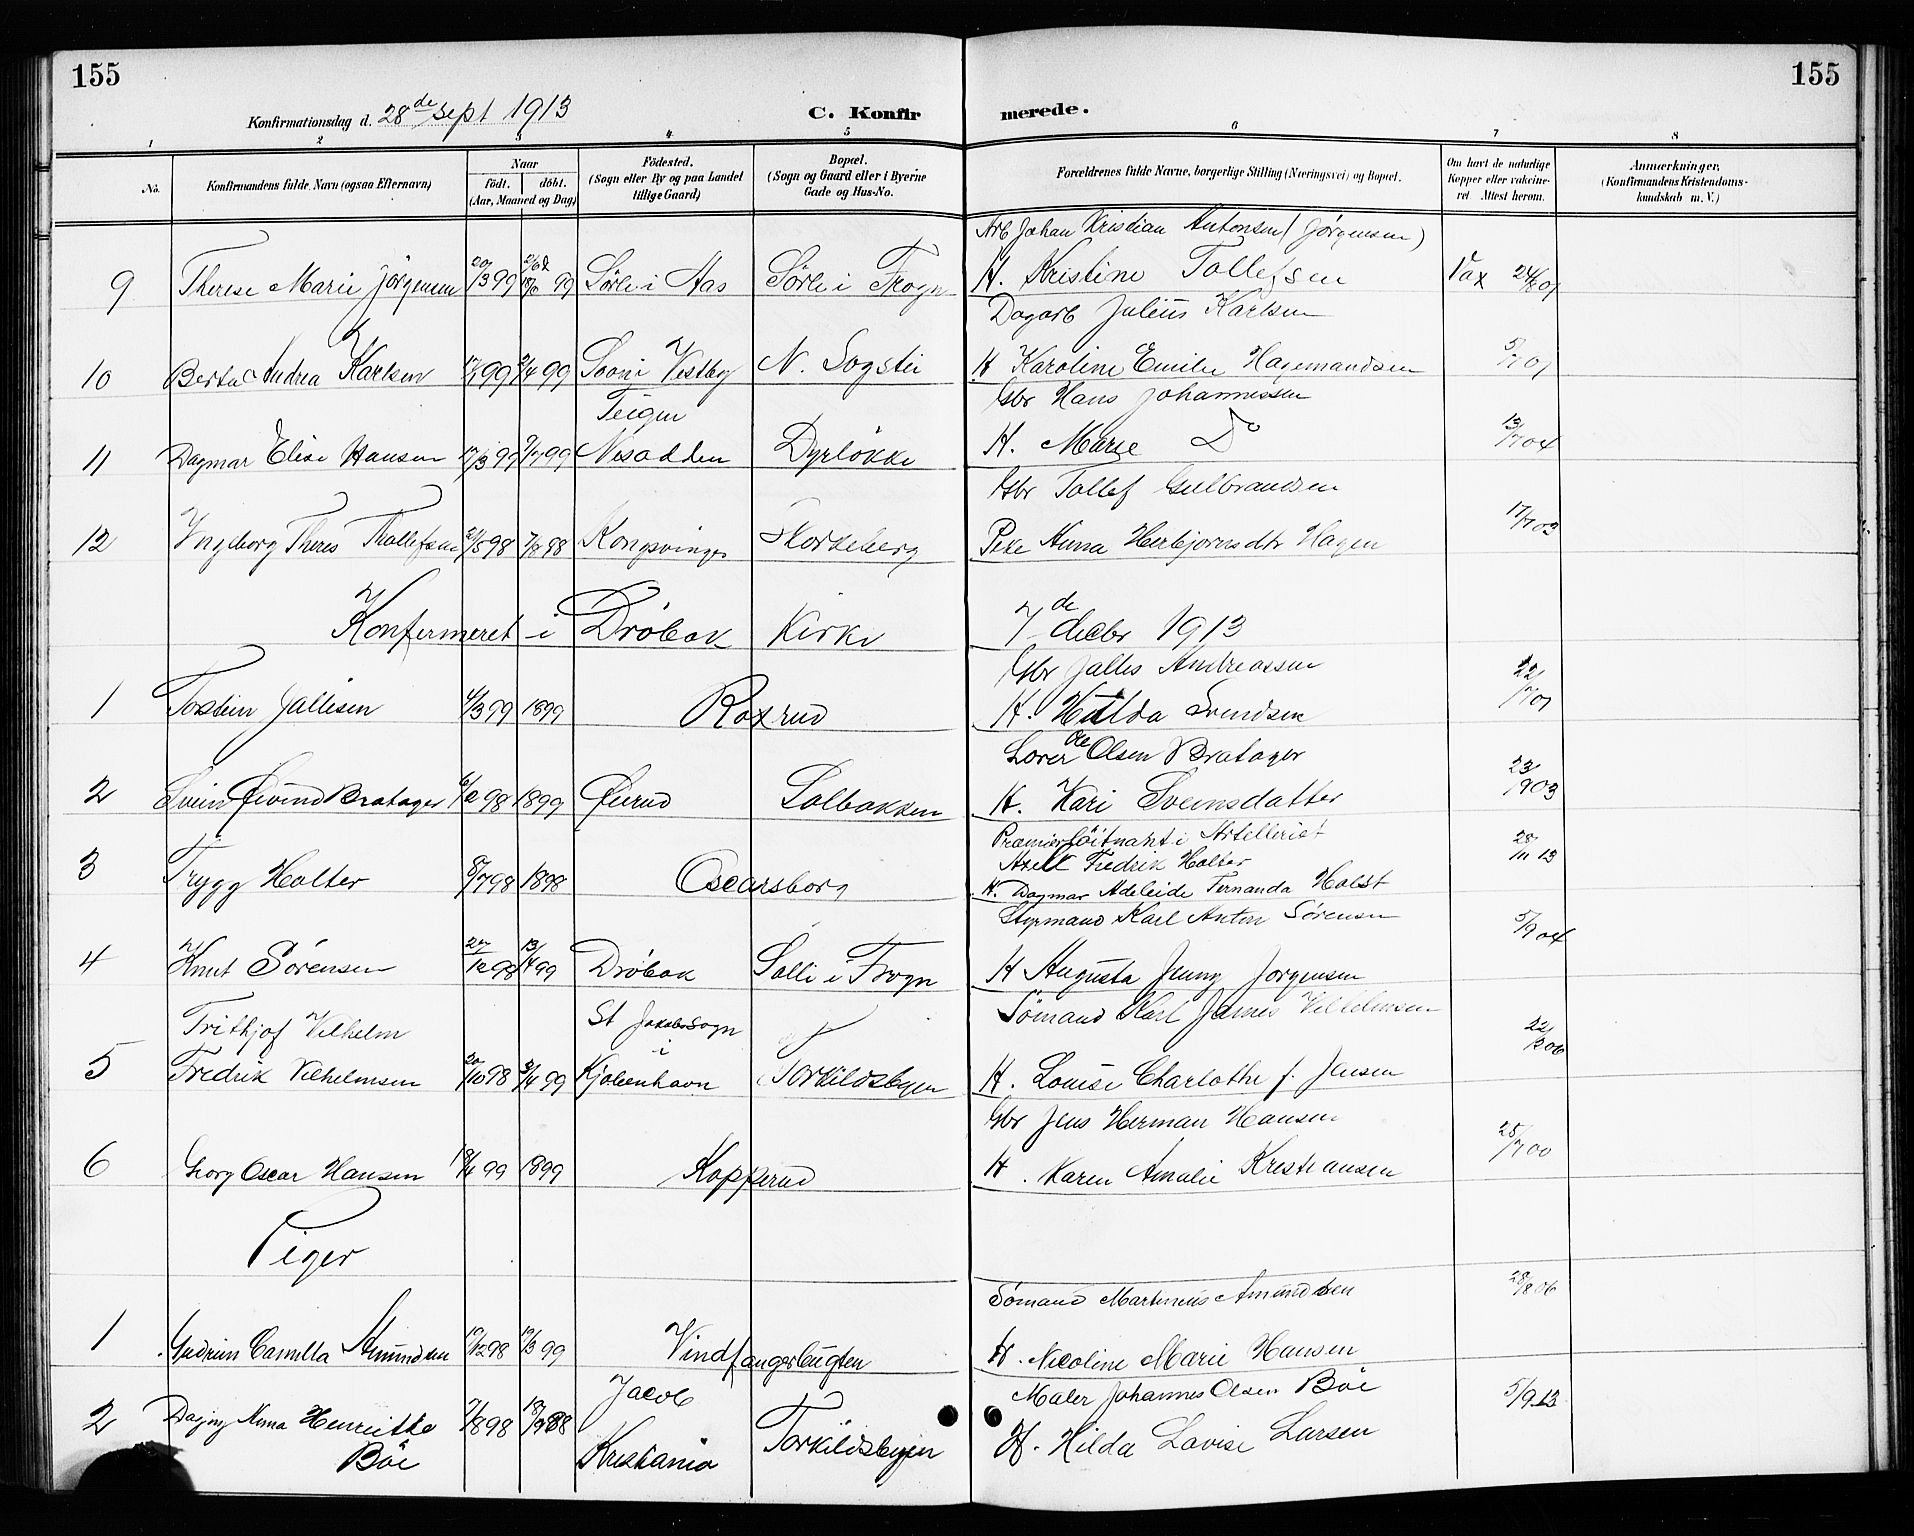 155
155
Konfirmationsdag d. 28de Sept 1913
C. Konfirmerede.
1 2 3 4 5 6 7 8
No.
Konfirmandens fulde Navn (ogsaa Efternavn)
Naar
födt. döbt.
(Aar, Maaned og Dag)
Födested.
(Sogn eller By og paa Landet
tillige Gaard)
Bopæl.
(Sogn og Gaard eller i Byerne
Gade og Hus-No.
Forældrenes fulde Navne, borgerlige Stilling (Næringsvei) og Bopæl.
Om havt de naturlige
Kopper eller vakcine-
ret. Attest herom.
Anmærkninger,
(Konfirmandens Kristendoms-
kundskab m. V.)
Arb Johan Kristian Antonsen (Jörgensen)
9 Therese Marie Jörgensen 20/3 99 99 Sörli i Aas Sörli i Frogn H. Kristine Tollefsen Vax 24/8 01
Dagarb Julius Karlsen
10 Berta Andrea Karlsen 99 2/4 99 Sooni Vestby N. Sogsti H Karoline Emilie Hagemandsen 5/7 01
Teigen
Gbr Hans Johannessen
11 Dagmar Elise Hansen 17/3 99 99 Nesodden Dyrlökke H. Marie Do 13/7 04
Gbr Tollef Gulbrandsen
12 Yngborg Theres Thollefsen 21/5 98 7/8 98 Kongsvinger Skorkeberg Pike Anna Herbjornsdtr Hagen 17/7 03
Konfermeret i Dröbak Kirke 7de decbr 1913
Gbr Jalles Andreassen
1 Torstein Jallisen 4/3 99 1899 Roxrud H. Hulda Svendsen 22/7 01
Lærer Ole Olsen Bratager
2 Svein Øivind Bratager 6/12 98 1899 Øierud Solbakken H. Kari Sveinsdatter 23/9 03
Præmierlöitnant i Artelleriet
Axell Fredrik Holter
3 Trygg Holter 8/7 98 1898 Oscarsborg 28/11 13
H. Dagmar Adeleide Fernanda Holst
Styrmand Karl Anton Sörensen
4 Knut Sörensen 27/12 98 13/4 99 Dröbak Solli i Frogn H Augusta Jenny Jorgensen 5/9 04
Sömand Karl James Vilhelmsen
Frithjof Vilhelm St Jakobs Sogn
i
5 Fredrik Vilhelmsen 20/10 98 3/4 99 Kjobenhavn Torkildsbyen H. Louise Charlothe f. Jensen 22/8 06
Gbr Jens Herman Hansen
6 Georg Oscar Hansen 19/4 99 1899 Kopperud H. Karen Amalie Kristiansen 25/7 00
Piger
Sömand Martinius Amundsen
1 Gudrun Camilla Amundsen 19/12 98 19/3 99 Vindfangerbugten H. Nicoline Marie Hansen 28/8 06
Jacob Maler Johannes Olsen Böe
2 Dagny Anna Henriette 7/8 98 18/9 98 Torkildsbyen 5/9 13
Böe Kristiania H. Hilda Lovise Larsen